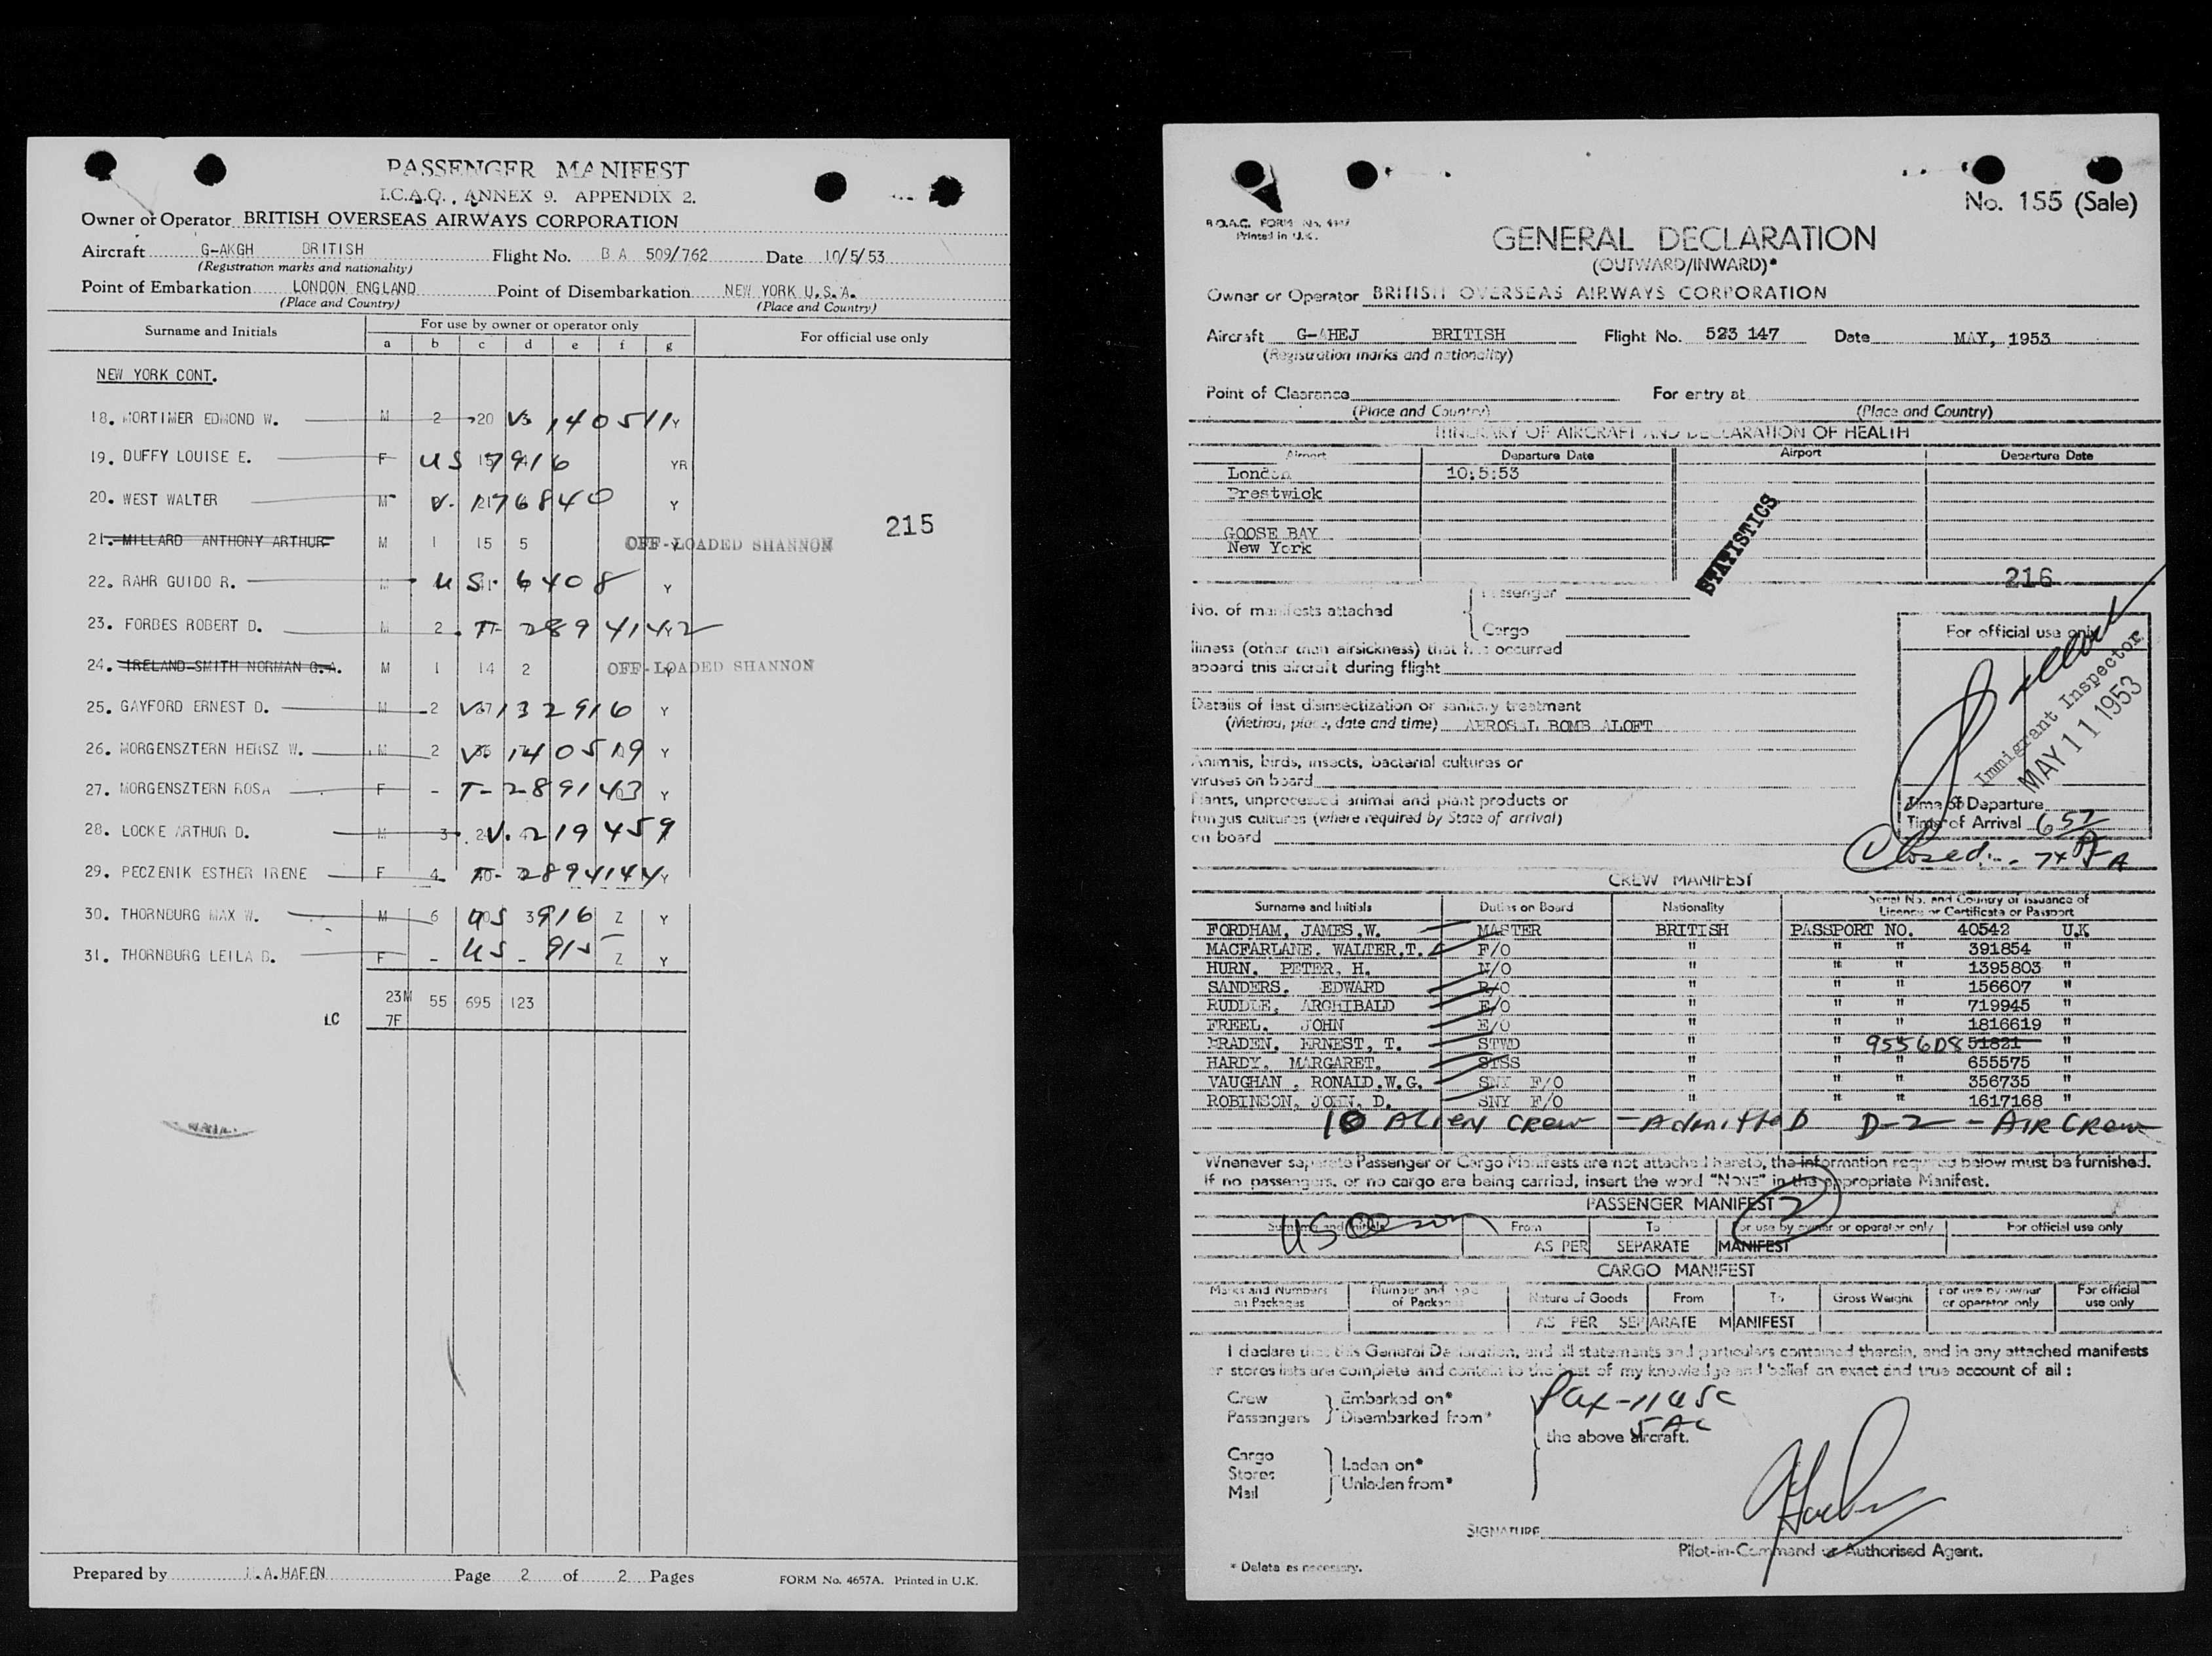 PASSENGER MANIFEST
I.C.A.O. ANNEX 9. APPENDIX 2.
Owner or Operator BRITISH OVERSEAS AIRWAYS CORPORATION
Aircraft G-AKGH BRITISH Flight No. B A 509/762 Date 10/5/53
(Registration marks and nationality)
Point of Embarkation LONDON ENGLAND Point of Disembarkation NEW YORK U.S.A.
(Place and Country) (Place and Country)
Surname and Initials For use by owner or operator only For official use only
a b c d e f g
NEW YORK CONT.
18. MORTIMER EDMOND W. M 2 20 V. 140511 Y
19. DUFFY LOUISE E. F US 7916 YR
20. WEST WALTER M V. 176840 Y
215
21. MILLARD ANTHONY ARTHUR M 1 15 5 OFF-LOADED SHANNON
22. RAHR GUIDO R. M US. 6408 Y
23. FORBES ROBERT D. M 2 T- 2894142
24. IRELAND-SMITH NORMAN G.A. M 1 14 2 OFF-LOADED SHANNON
25. GAYFORD ERNEST D. M 2 V 132916 Y
26. MORGENSZTERN HERSZ W. M 2 V. 140519 Y
27. MORGENSZTERN ROSA F - T-289143 Y
28. LOCKE ARTHUR D. M 3 V. 219459
29. PECZENIK ESTHER IRENE F 4 T- 2894144 Y
30. THORNBURG MAX W. M 6 US 3916 Z Y
31. THORNBURG LEILA B. F - US 915 Z Y
23M 55 695 123
LC 7F
MAIL.
Prepared by N.A.HAFEN Page 2 of 2 Pages FORM No. 4657A. Printed in U.K.
No. 155 (Sale)
B.O.A.C. FORM No.
Printed in U.K.
GENERAL DECLARATION
(OUTWARD/INWARD)*
Owner or Operator BRITISH OVERSEAS AIRWAYS CORPORATION
Aircraft G-AHEJ BRITISH Flight No. 523 147 Date MAY, 1953
(Registration marks and nationality)
Point of Clearance For entry at
(Place and Country) (Place and Country)
ITINERARY OF AIRCRAFT AND DECLARATION OF HEALTH
Airport Departure Date Airport Departure Date
London 10:5:53
Prestwick
GOOSE BAY
New York
STATISTICS
216
No. of manifests attached { Passenger
Cargo
Illness (other than airsickness) that has occurred
aboard this aircraft during flight
Details of last disinsectization or sanitary treatment
(Method, place, date and time) AEROSAL BOMB ALOFT
Animals, birds, insects, bacterial cultures or
viruses on board
Plants, unprocessed animal and plant products or
fungus cultures (where required by State of arrival)
on board
For official use only
Immigrant Inspector
MAY 11 1953
Time of Departure
Time of Arrival 657
Closed
CREW MANIFEST
Surname and Initials Duties on Board Nationality Serial No. and Country of Issuance of
Licence or Certificate or Passport
FORDHAM, JAMES.W. MASTER BRITISH PASSPORT NO. 40542 U.K
MACFARLANE. WALTER.T. F/O " " " 391854 "
HURN, PETER, H. N/O " " " 1395803 "
SANDERS. EDWARD R/O " " " 156607 "
RUDDLE, ARCHIBALD E/O " " " 719945 "
FREEL. JOHN E/O " " " 1816619 "
BRADEN, ERNEST, T. STWD " " 955608 51821 "
HARDY, MARGARET. STSS " " " 655575 "
VAUGHAN , RONALD.W.G. SNY F/O " " " 356735 "
ROBINSON, JOHN, D. SNY F/O " " " 1617168 "
10 Alien Crew = Admitted D-2 - AIR CREW
Whenever separate Passenger or Cargo Manifests are not attached hereto, the information required below must be furnished.
If no passengers, or no cargo are being carried, insert the word "NONE" in the appropriate Manifest.
PASSENGER MANIFEST 2
Surname and Initials From To For use by owner or operator only For official use only
AS PER SEPARATE MANIFEST
CARGO MANIFEST
Marks and Numbers on Packages Number and Type of Packages Nature of Goods From To Gross Weight For use by owner or operator only For official use only
AS PER SEPARATE MANIFEST
I declare that this General Declaration, and all statements and particulars contained therein, and in any attached manifests
or stores lists are complete and contain to the best of my knowledge and belief an exact and true account of all :
Crew } Embarked on*
Passengers } Disembarked from*
Pax-11 USC
5 AC
the above aircraft.
Cargo
Stores } Laden on*
Mail } Unladen from*
SIGNATURE
Pilot-in-Command or Authorised Agent.
* Delete as necessary.